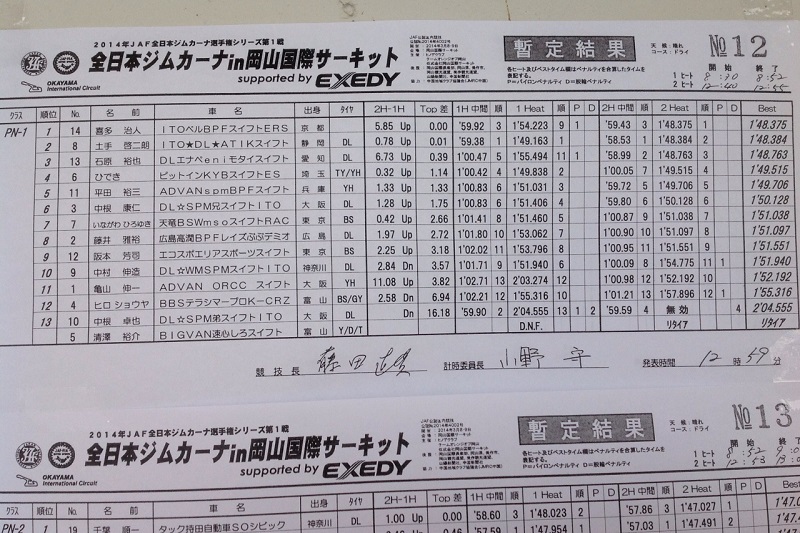 2014年JAF全日本ジムカーナ選手権シリーズ第1戦
全日本ジムカーナin岡山国際サーキット
supported by EXEDY
OKAYAMA
International Circuit
暫定結果
天候：晴れ
コース：ドライ
№12
各ヒート及びベストタイム欄はペナルティを合算したタイムを
表記する。
P=パイロンペナルティ D=脱輪ペナルティ
開始 終了
1ヒート 8:30 8:52
2ヒート 12:40 12:55
クラス 順位 No. 名前 車名 出身 タイヤ 2H-1H Top差 1H中間 順 1 Heat 順 P D 2H中間 順 2 Heat 順 P D Best
PN-1 1 14 喜多 治人 ITOベルBPFスイフトERS 京都 5.85 Up 0.00 1'59.92 3 1'54.223 9 1 1'59.43 3 1'48.375 1 1'48.375
2 8 土手 啓二朗 ITO★DL★ATIKスイフト 静岡 DL 0.78 Up 0.01 1'59.38 1 1'49.163 1 1'58.53 1 1'48.384 2 1'48.384
3 13 石原 裕也 DLエナペniモタイスイフト 愛知 DL 6.73 Up 0.39 1'00.47 5 1'55.494 11 1 1'58.99 2 1'48.763 3 1'48.763
4 6 ひでき ピットインKYBスイフトES 埼玉 TY/YH 0.32 Up 1.14 1'00.42 4 1'49.838 2 1'00.05 7 1'49.515 4 1'49.515
5 11 平田 裕三 ADVANspmBPFスイフト 兵庫 YH 1.33 Up 1.33 1'00.83 6 1'51.031 3 1'59.72 5 1'49.706 5 1'49.706
6 3 中根 康仁 DL☆SPM兄スイフトITO 大阪 DL 1.28 Up 1.75 1'00.83 6 1'51.406 4 1'59.80 6 1'50.128 6 1'50.128
7 7 いながわ ひろゆき 天竜BSWmsoスイフトRAC 東京 BS 0.42 Up 2.66 1'01.41 8 1'51.460 5 1'00.87 9 1'51.038 7 1'51.038
8 2 藤井 雅裕 広島高潤BPFレイズぶぶデミオ 広島 DL 1.97 Up 2.72 1'01.80 10 1'53.062 7 1'00.90 10 1'51.097 8 1'51.097
9 12 阪本 芳司 エコスポエリアスポーツスイフト 東京 BS 2.25 Up 3.18 1'02.02 11 1'53.796 8 1'00.95 11 1'51.551 9 1'51.551
10 9 中村 伸造 DL☆WMSPMスイフトITO 神奈川 DL 2.84 Dn 3.57 1'01.71 9 1'51.940 6 1'00.09 8 1'54.775 11 1 1'51.940
11 1 亀山 伸一 ADVAN ORCC スイフト 大阪 YH 11.08 Up 3.82 1'02.71 13 2'03.274 12 1'00.98 12 1'52.192 10 1'52.192
12 4 ヒロ ショウヤ BBSテラシマープロK-CRZ 富山 BS/GY 2.58 Dn 6.94 1'02.21 12 1'55.316 10 1'01.21 13 1'57.896 12 1 1'55.316
13 10 中根 卓也 DL☆SPM弟スイフトITO 大阪 DL Dn 16.18 1'59.90 2 2'04.555 13 1 2 1'59.59 4 無効 4 2'04.555
5 清澤 裕介 BIGVAN速心しろスイフト 富山 Y/D/T D.N.F. リタイア リタイア
競技長 計時委員長 小野 守 発表時間 12時59分
2014年JAF全日本ジムカーナ選手権シリーズ第1戦
全日本ジムカーナin岡山国際サーキット
supported by EXEDY
OKAYAMA
International Circuit
暫定結果
天候：晴れ
コース：ドライ
№13
各ヒート及びベストタイム欄はペナルティを合算したタイムを
表記する。
P=パイロンペナルティ D=脱輪ペナルティ
開始 終了
1ヒート 8:52
2ヒート 12:53
クラス 順位 No. 名前 車名 出身 タイヤ 2H-1H Top差 1H中間 順 1 Heat 順 P D 2H中間 順 2 Heat 順 P D Best
PN-2 1 19 千葉 順一 タック持田自動車SOシビック 神奈川 DL 1.00 Up 1'58.60 3 1'48.023 2 1'57.86 3 1'47.027 1
1'47.954 1 1'57.03 1 1'47.491 2